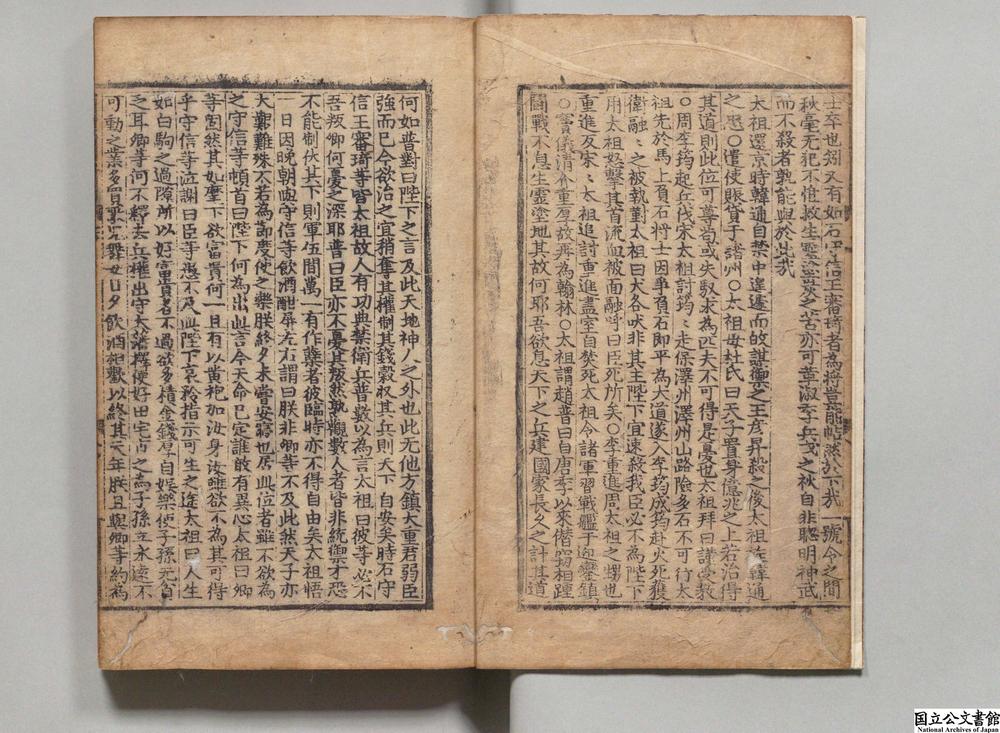 秋毫无犯不惟救生
而不殺者孰能與於此哉
太祖還京時韓通自禁中遑遽而彥昇殺之後太祖
之〇遣使賑貸于諸州〇太祖母杜氏曰天子置身億兆之上若治得
其道則此位可尊苟或失馭求為匹夫不可得是憂也太祖拜曰謹受教
〇周李筠起兵伐宋太祖討筠〻走保澤州澤州山路險多石不可行太
祖先於馬上負石將士因爭負石即平為大道遂入李筠赴火死獲
衛融〻之被執對太祖曰犬各吠非其主陛下宜速殺我臣必不為陛下
用太祖怒擊其首流血被面融呼曰臣死所矣〇李重進周太祖之甥也
重進反宋〻太祖追討重進盡室自焚死太祖令諸軍習戰艦于迎鑾鎮
〇竇儀清介重厚故再為翰林〇太祖謂趙普曰自唐季以來僭竊相踵
鬪戰不息生靈塗地其故何耶吾欲息天下之兵建國家長久之計其道
何如普對曰陛下之言及此天地神人之外也此无他方鎮大重君弱臣
強而已今欲治之宜稍奪其權制其錢穀收其兵則天下自安矣時石守
信王審琦等皆太祖故人有功典禁衛兵普數以為言太祖曰彼等必不
吾叛卿何憂之深耶普曰臣亦不憂其叛然熟觀數人者皆非統御才恐
不能制伏其下則軍伍間萬一有作孽者彼臨時亦不得自由矣太祖悟
一日因晚朝與守信等飲酒酣屏左右謂曰朕非卿等不及此然天子亦
大艱難殊不若為節度使之樂朕終夕未嘗安寢也居此位者誰不欲為
之守信等頓首曰陛下何為出此言今天命已定誰敢有異心太祖曰卿
等固然其如麾下欲富貴何一旦有以黃袍加汝身汝雖欲不為其可得
乎守信等泣謝曰臣等愚不及此陛下哀矜指示可生之途太祖曰人生
如白駒之過隙所以好富貴者不過欲多積金錢厚自娛樂使子孫无貧
之耳卿等何不釋去兵權出守大藩擇便好田宅市之為子孫立永遠不
可動之業多日夕飲酒相歡以終其天年朕且與卿等約為
国立公文書館
National Archives of Japan